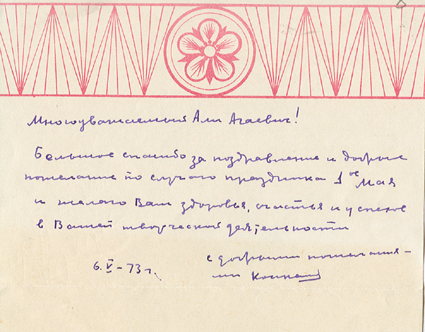 Многоуважаемый Али Агаевич!
Большое спасибо за поздравление и добрые
пожелание по случаю праздника 1ое Мая
и желаю Вам здоровья, счастья и успехов
в Вашей творческой деятельности
6.V-73 г.
с добрыми пожелания-
ми